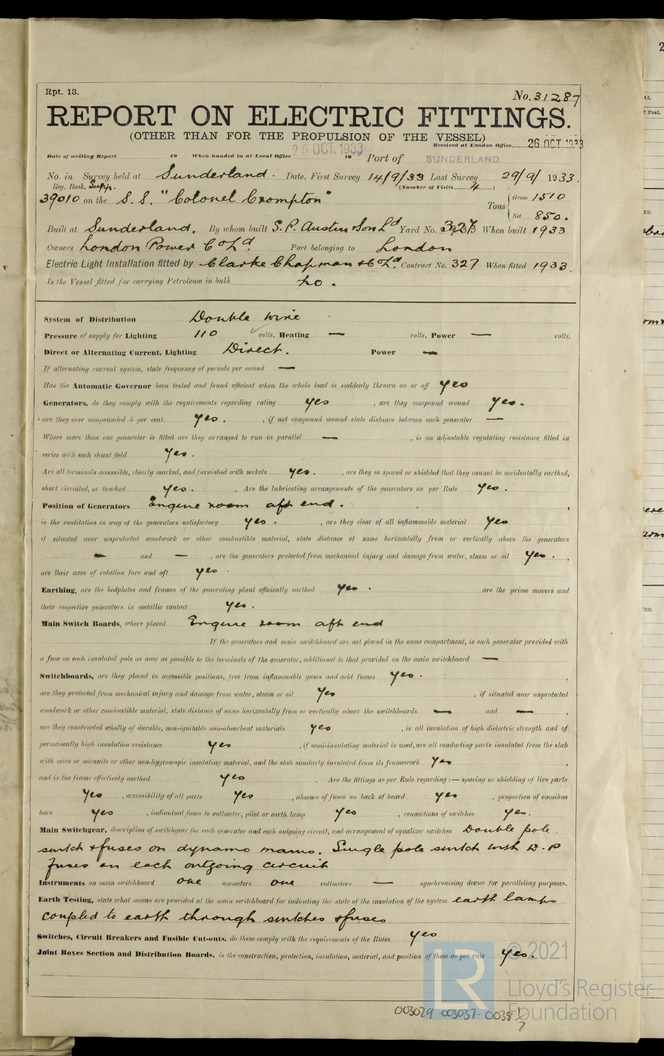 Rpt. 13.
No. 31287
REPORT ON ELECTRIC FITTINGS.
(OTHER THAN FOR THE PROPULSION OF THE VESSEL)
Received at London Office 26 OCT 1933
Date of writing Report 19 When handed in at Local Office 25 OCT. 1933 19 Port of SUNDERLAND.
No. in Survey held at Sunderland. Date, First Survey 14/9/33 Last Survey 29/9/1933.
Reg. Book. Supp. (Number of Visits 4)
39010 on the S.S. "Colonel Crompton" Tons { Gross 1510
Net 850.
Built at Sunderland. By whom built S.P. Austin & Son Ld Yard No. When built 1933
Owners London Power Co Ld Port belonging to London
Electric Light Installation fitted by Clarke Chapman & Co Ld. Contract No. 327 When fitted 1933.
Is the Vessel fitted for carrying Petroleum in bulk No.
System of Distribution Double wire
Pressure of supply for Lighting 110 volts, Heating — volts, Power — volts.
Direct or Alternating Current, Lighting Direct. Power —
If alternating current system, state frequency of periods per second —
Has the Automatic Governor been tested and found efficient when the whole load is suddenly thrown on or off yes
Generators, do they comply with the requirements regarding rating yes, are they compound wound yes.
are they over compounded 5 per cent. yes., if not compound wound state distance between each generator —
Where more than one generator is fitted are they arranged to run in parallel —, is an adjustable regulating resistance fitted in
series with each shunt field yes.
Are all terminals accessible, clearly marked, and furnished with sockets yes., are they so spaced or shielded that they cannot be accidentally earthed,
short circuited, or touched yes. Are the lubricating arrangements of the generators as per Rule yes.
Position of Generators Engine room aft end.
is the ventilation in way of the generators satisfactory yes., are they clear of all inflammable material yes
if situated near unprotected woodwork or other combustible material, state distance of same horizontally from or vertically above the generators
— and —, are the generators protected from mechanical injury and damage from water, steam or oil yes.,
are their axes of rotation fore and aft yes.
Earthing, are the bedplates and frames of the generating plant efficiently earthed yes. are the prime movers and
their respective generators in metallic contact yes.
Main Switch Boards, where placed Engine room aft end
If the generators and main switchboard are not placed in the same compartment, is each generator provided with
a fuse on each insulated pole as near as possible to the terminals of the generator, additional to that provided on the main switchboard —
Switchboards, are they placed in accessible positions, free from inflammable gases and acid fumes yes.
are they protected from mechanical injury and damage from water, steam or oil yes, if situated near unprotected
woodwork or other combustible material, state distance of same horizontally from or vertically above the switchboards — and —,
are they constructed wholly of durable, non-ignitable non-absorbent materials yes, is all insulation of high dielectric strength and of
permanently high insulation resistance yes, if semi-insulating material is used, are all conducting parts insulated from the slab
with mica or micanite or other non-hygroscopic insulating material, and the slab similarly insulated from its framework yes,
and is the frame effectively earthed yes. Are the fittings as per Rule regarding:— spacing or shielding of live parts
yes, accessibility of all parts yes, absence of fuses on back of board yes, proportion of omnibus
bars yes, individual fuses to voltmeter, pilot or earth lamp yes, connections of switches yes.
Main Switchgear, description of switchgear for each generator and each outgoing circuit, and arrangement of equalizer switches Double pole
switch & fuses on dynamo mains. Single pole switch with D.P
fuses on each outgoing circuit
Instruments on main switchboard one ammeters one voltmeters — synchronising device for paralleling purposes.
Earth Testing, state what means are provided at the main switchboard for indicating the state of the insulation of the system earth lamps
coupled to earth through switches & fuses
Switches, Circuit Breakers and Fusible Cut-outs, do these comply with the requirements of the Rules yes
Joint Boxes Section and Distribution Boards, is the construction, protection, insulation, material, and position of these as per rule yes.
LR © 2021
Lloyd's Register
Foundation